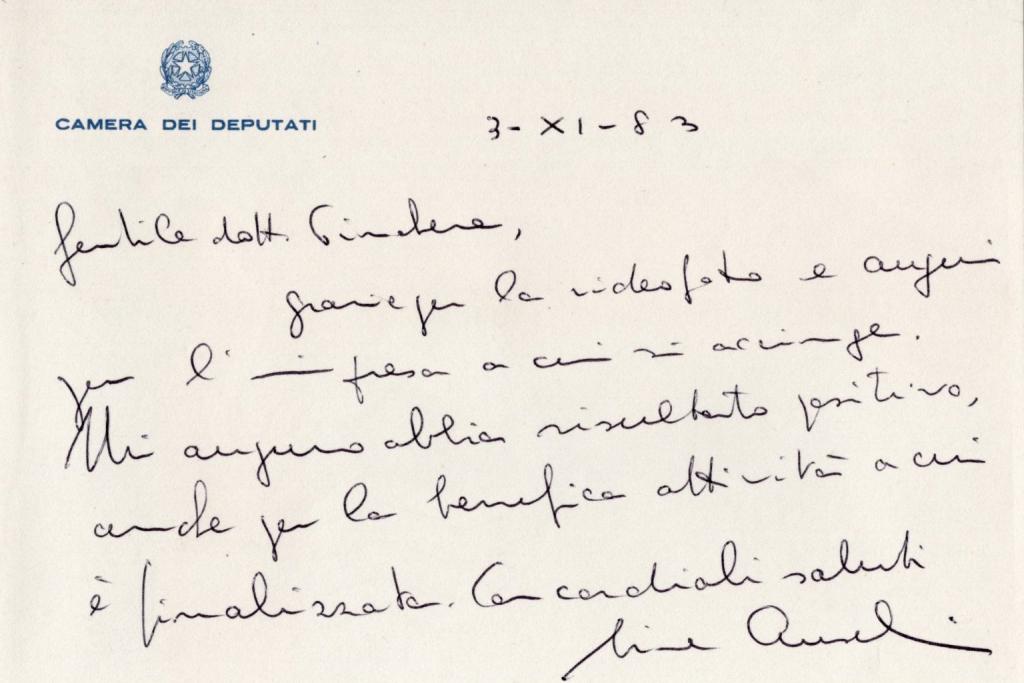 CAMERA DEI DEPUTATI
3-XI-83
Gentile dott.
grazie per la videofoto e auguri
per l'impresa a cui si accinge.
Mi auguro abbia risultato positivo,
anche per la benefica attività a cui
è finalizzata. Con cordiali saluti